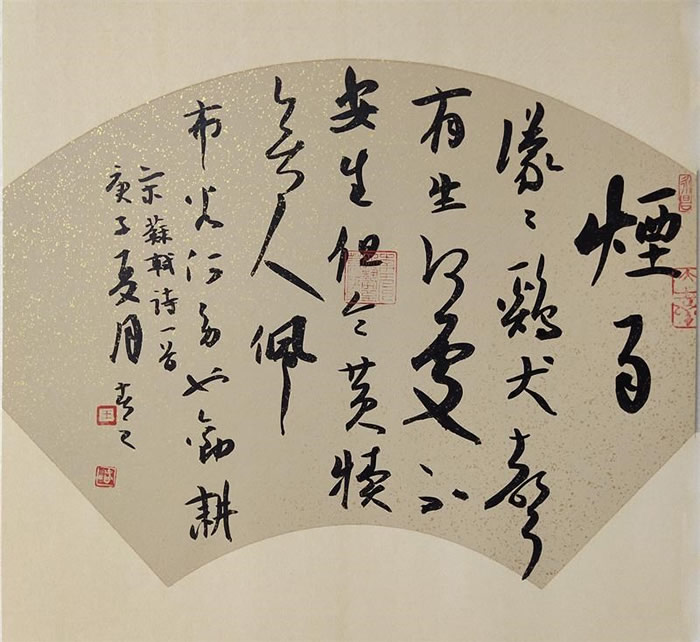 煙雨
濛々鷄犬聲
有生何處不
安生但令黄犢
無人佩
布谷何勞也勸耕
宋蘇軾詩一首
庚子夏月